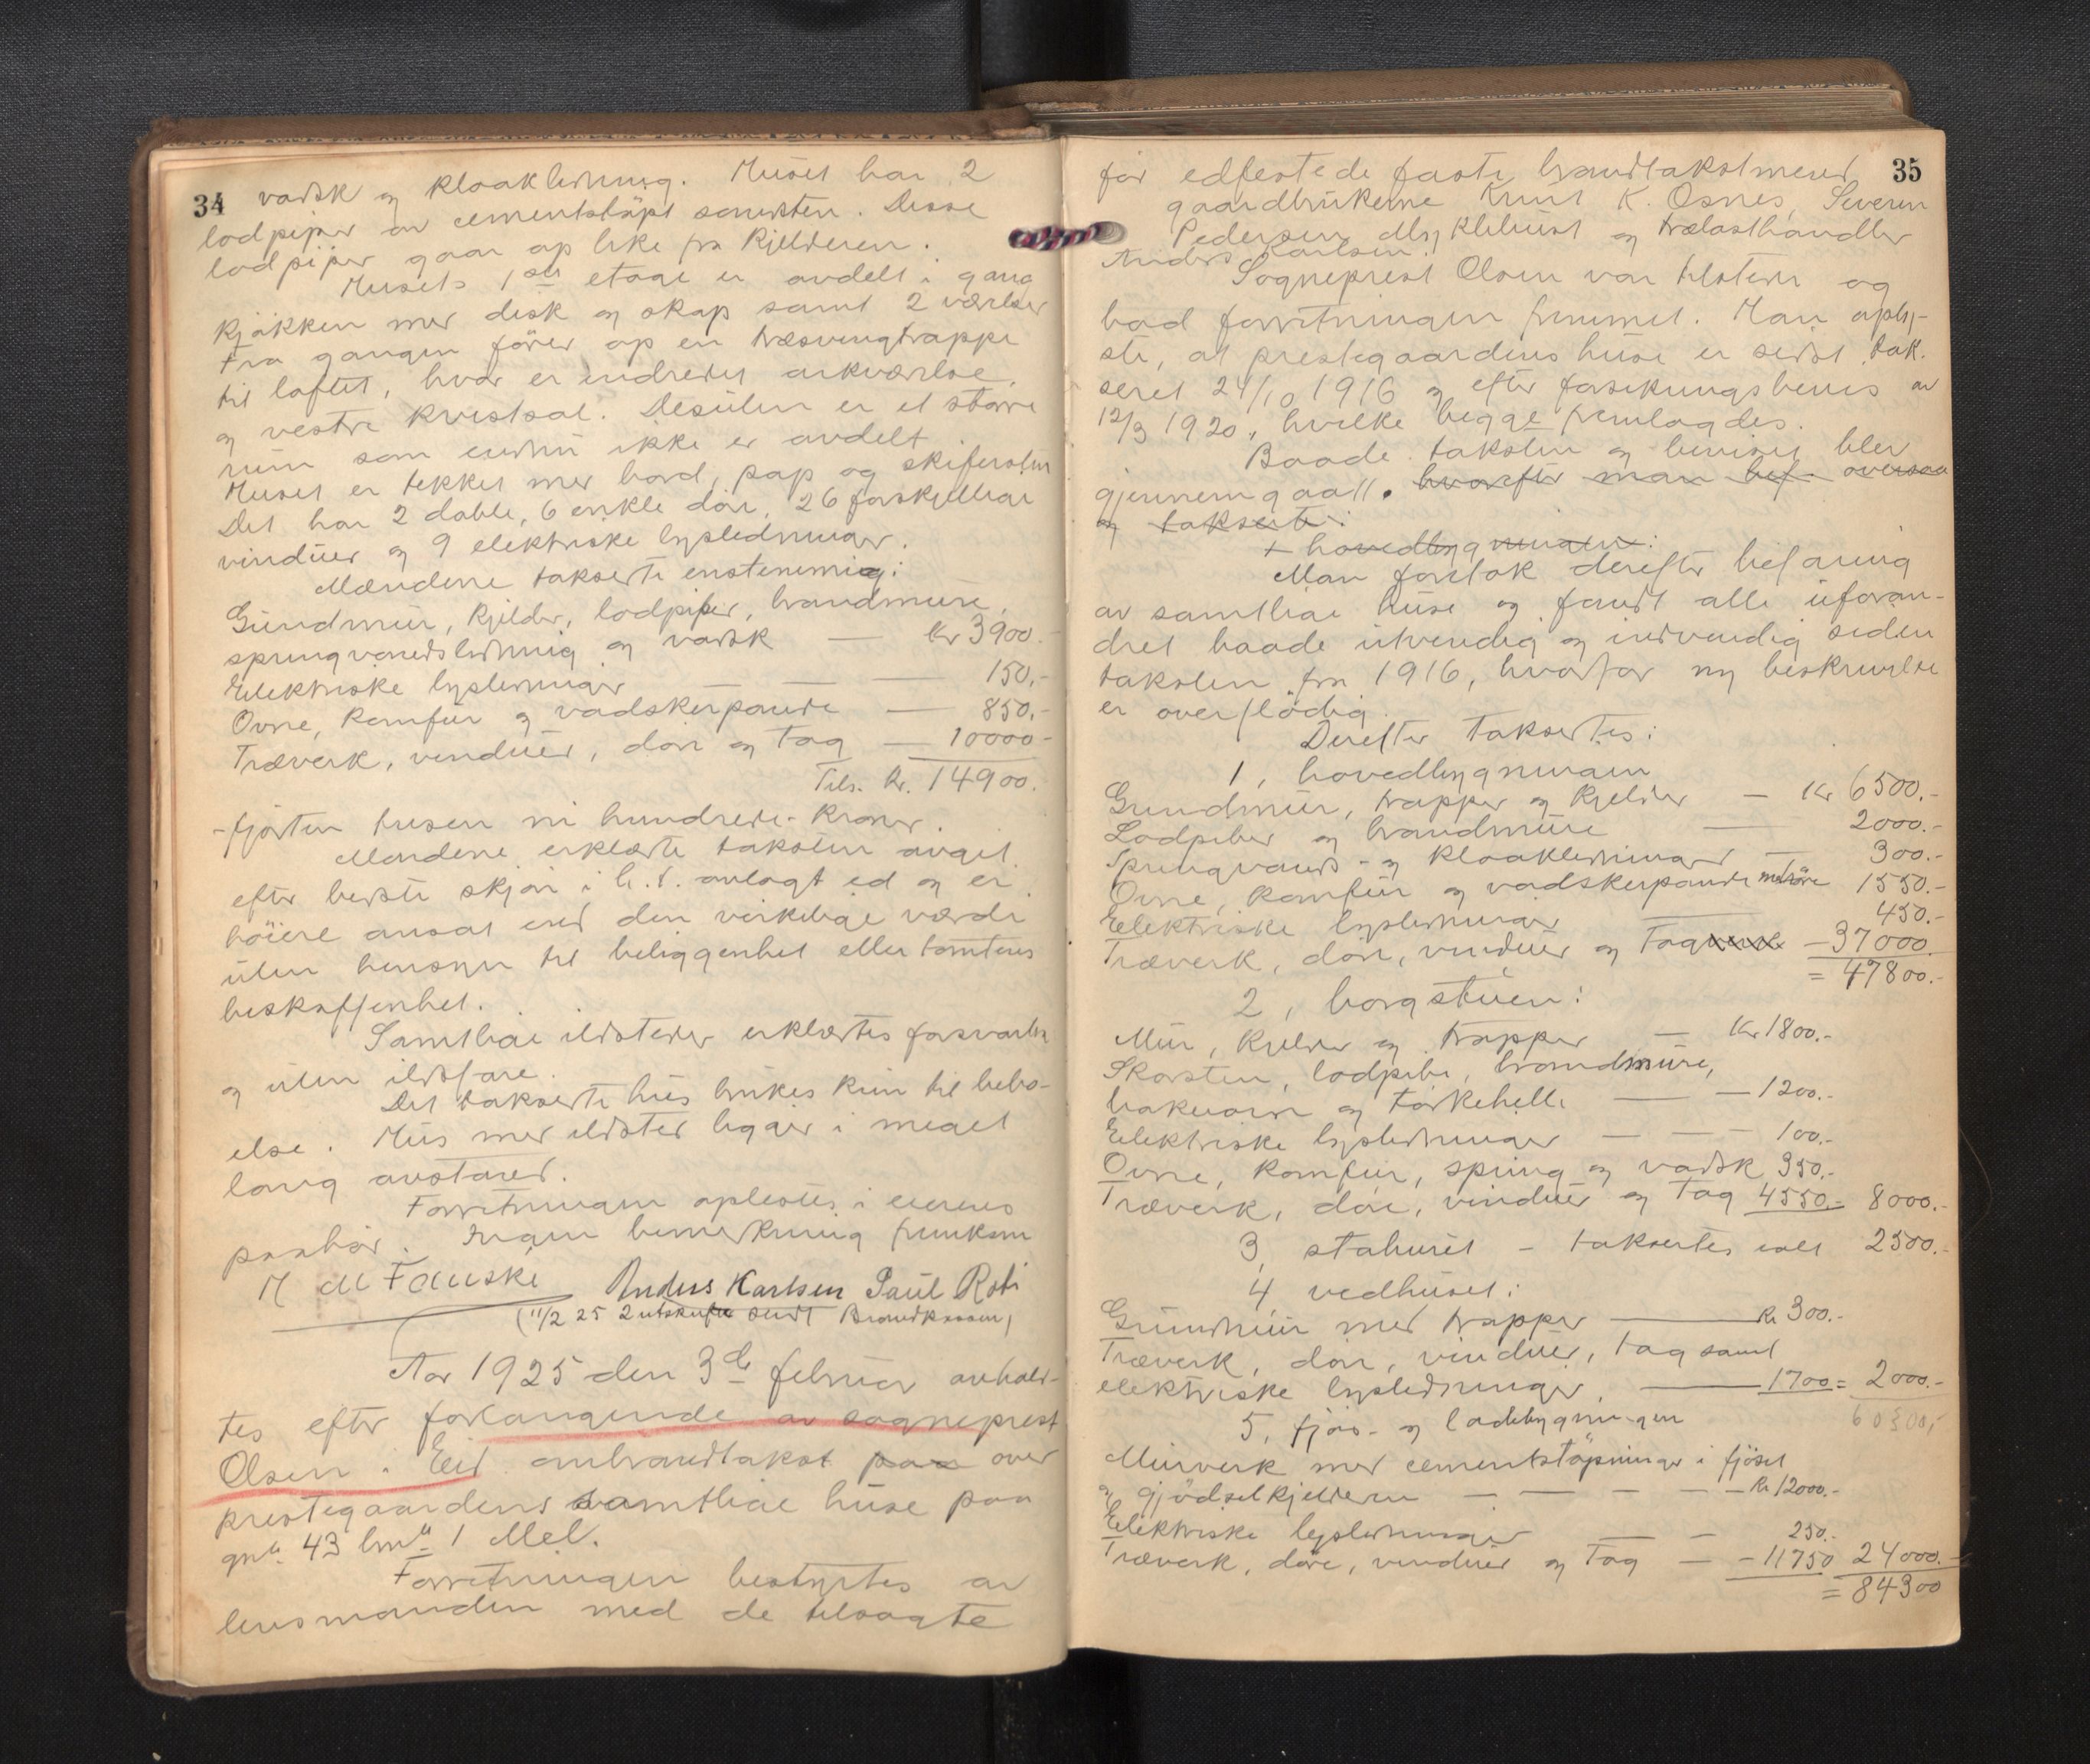 34
vadsk og kloakledning. Huset har 2
lodpiper av cementstöpt sandsten. Disse
lodpiper gaar op like fra kjelderen.
Husets 1ste etage er avdelt i gang
kjökken med disk og skap samt 2 værelser
Fra gangen förer op en træsvingtrappe
til loftet, hvor er indredet arkværelse,
og vestre kvistsal. Desuten er et större
rum som endnu ikke er avdelt.
Huset er tekket med bord, pap og skifersten
Det har 2 doble, 6 enkle dör, 26 forskjellige
vinduer og 9 elektriske lysledninger.
Mændene takserte enstemmig:
Gundmur, kjelder, lodpiper, brandmure,
springvandsledning og vadsk — Kr 3900.-
Elektriske lysledninger — — — 150.-
Ovne, komfur og vadskerpande — 850.-
Træverk, vinduer, dör og Tag — 10000-
Tils. kr. 14900.
-fjorten tusen ni hundrede- kroner.
Mændene erklærte taksten avgit
efter bedste skjön i h. t. avlagt ed og ei
höiere ansat end den virkelige værdi
uten hensyn til beliggenhet eller tomtens
beskaffenhet.
Samtlige ildsteder erklærtes forsvarlig
og uten ildsfare.
Det takserte hus brukes kun til bebo-
else. Hus med ildsted ligger i meget
lang avstand.
Forretningen oplestes i eierens
paahör. Ingen bemerkning fremkom
M Fauske Anders Karlsen Paul Roti
(11/2 25 2 utskrifter sendt Brandkassen)
Aar 1925 den 3de februar avhold-
tes efter forlangende av sogneprest
Olsen i Eid ombrandtakst paa over
prestegaardens samtlige huse paa
gnr. 43 brnr. 1 Mel.
Forretningen bestyrtes av
lensmanden med de tilsagte
35
för edfestede faste brandtakstmend
gaardbrukerne Knut K. Osnes, Severin
Pedersen Myklebust og trælasthandler
Anders Karlsen.
Sogneprest Olsen var tilstede og
bad forretningen fremmet. Han oply-
ste, at prestegaardens huse er sidst tak-
seret 24/10 1916 og efter forsikringsbevis av
12/3 1920, hvilke begge fremlagdes.
Baade taksten og beviset blev
gjennemgaatt. hvorefter man bef. oversaa
og takserte:
1 hovedbygningen:
Man foretok derefter befaring
av samtlige huse og fandt alle uforan-
dret baade utvendig og indvendig siden
taksten fra 1916, hvorfor ny beskrivelse
er overflödig.
Derefter Taksertes:
1, hovedbygningen
Grundmur, trapper og kjelder — Kr 6500.-
Lodpiber og brandmure — 2000.-
Springvands- og kloakledninger — 300.-
Ovne, komfur og vadskerpande med rör 1550.-
Elektriske lysledninger — 450.-
Træverk, dör, vinduer og Tag — 37000.
= 47800.-
2, borgstuen:
Mur, kjelder og trapper — Kr 1800.-
Skorsten, lodpibe, brandmure,
bakerovn og törkehelle — — 1200.-
Elektriske lysledninger — — — 100.-
Ovne, komfur, spring og vadsk 350.-
Træverk, döre, vinduer og Tag 4550.- 8000.-
3, staburet - taksertes real 2500.-
4, vedhuset:
Grundmur med trapper — Kr 300.-
Træverk, dör, vinduer, tag samt
elektriske lysledninger. — 1700 = 2000.-
60300,-
5, fjös- og ladebygningen
Murverk med cementstöpninger i fjöset
og gjödselkjelderen — — — — Kr 12000.-
Elektriske lysledninger — — 250.-
Træverk, döre, vinduer og Tag — - 11750 24000.-
= 84300